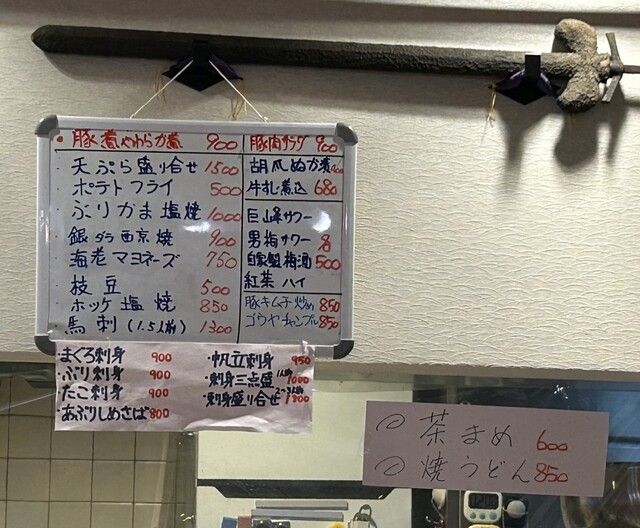 豚煮やわらか煮 900
天ぷら盛り合せ 1500
ポテトフライ 500
ぶりかま塩焼 1000
銀ダラ西京焼 900
海老マヨネーズ 750
枝豆 500
ホッケ塩焼 850
馬刺(1.5人前) 1300
豚肉サラダ 900
胡瓜ぬか漬 400
牛すじ煮込 680
巨峰サワー
男梅サワー 各
自家製梅酒 500
紅茶ハイ
豚キムチ炒め 850
ゴウヤチャンプル 850
まぐろ刺身 900
ぶり刺身 900
たこ刺身 900
あぶりしめさば 800
帆立刺身 950
刺身三点盛 1人前 1000
刺身盛り合せ 2~3人前 1800
茶まめ 600
焼うどん 850